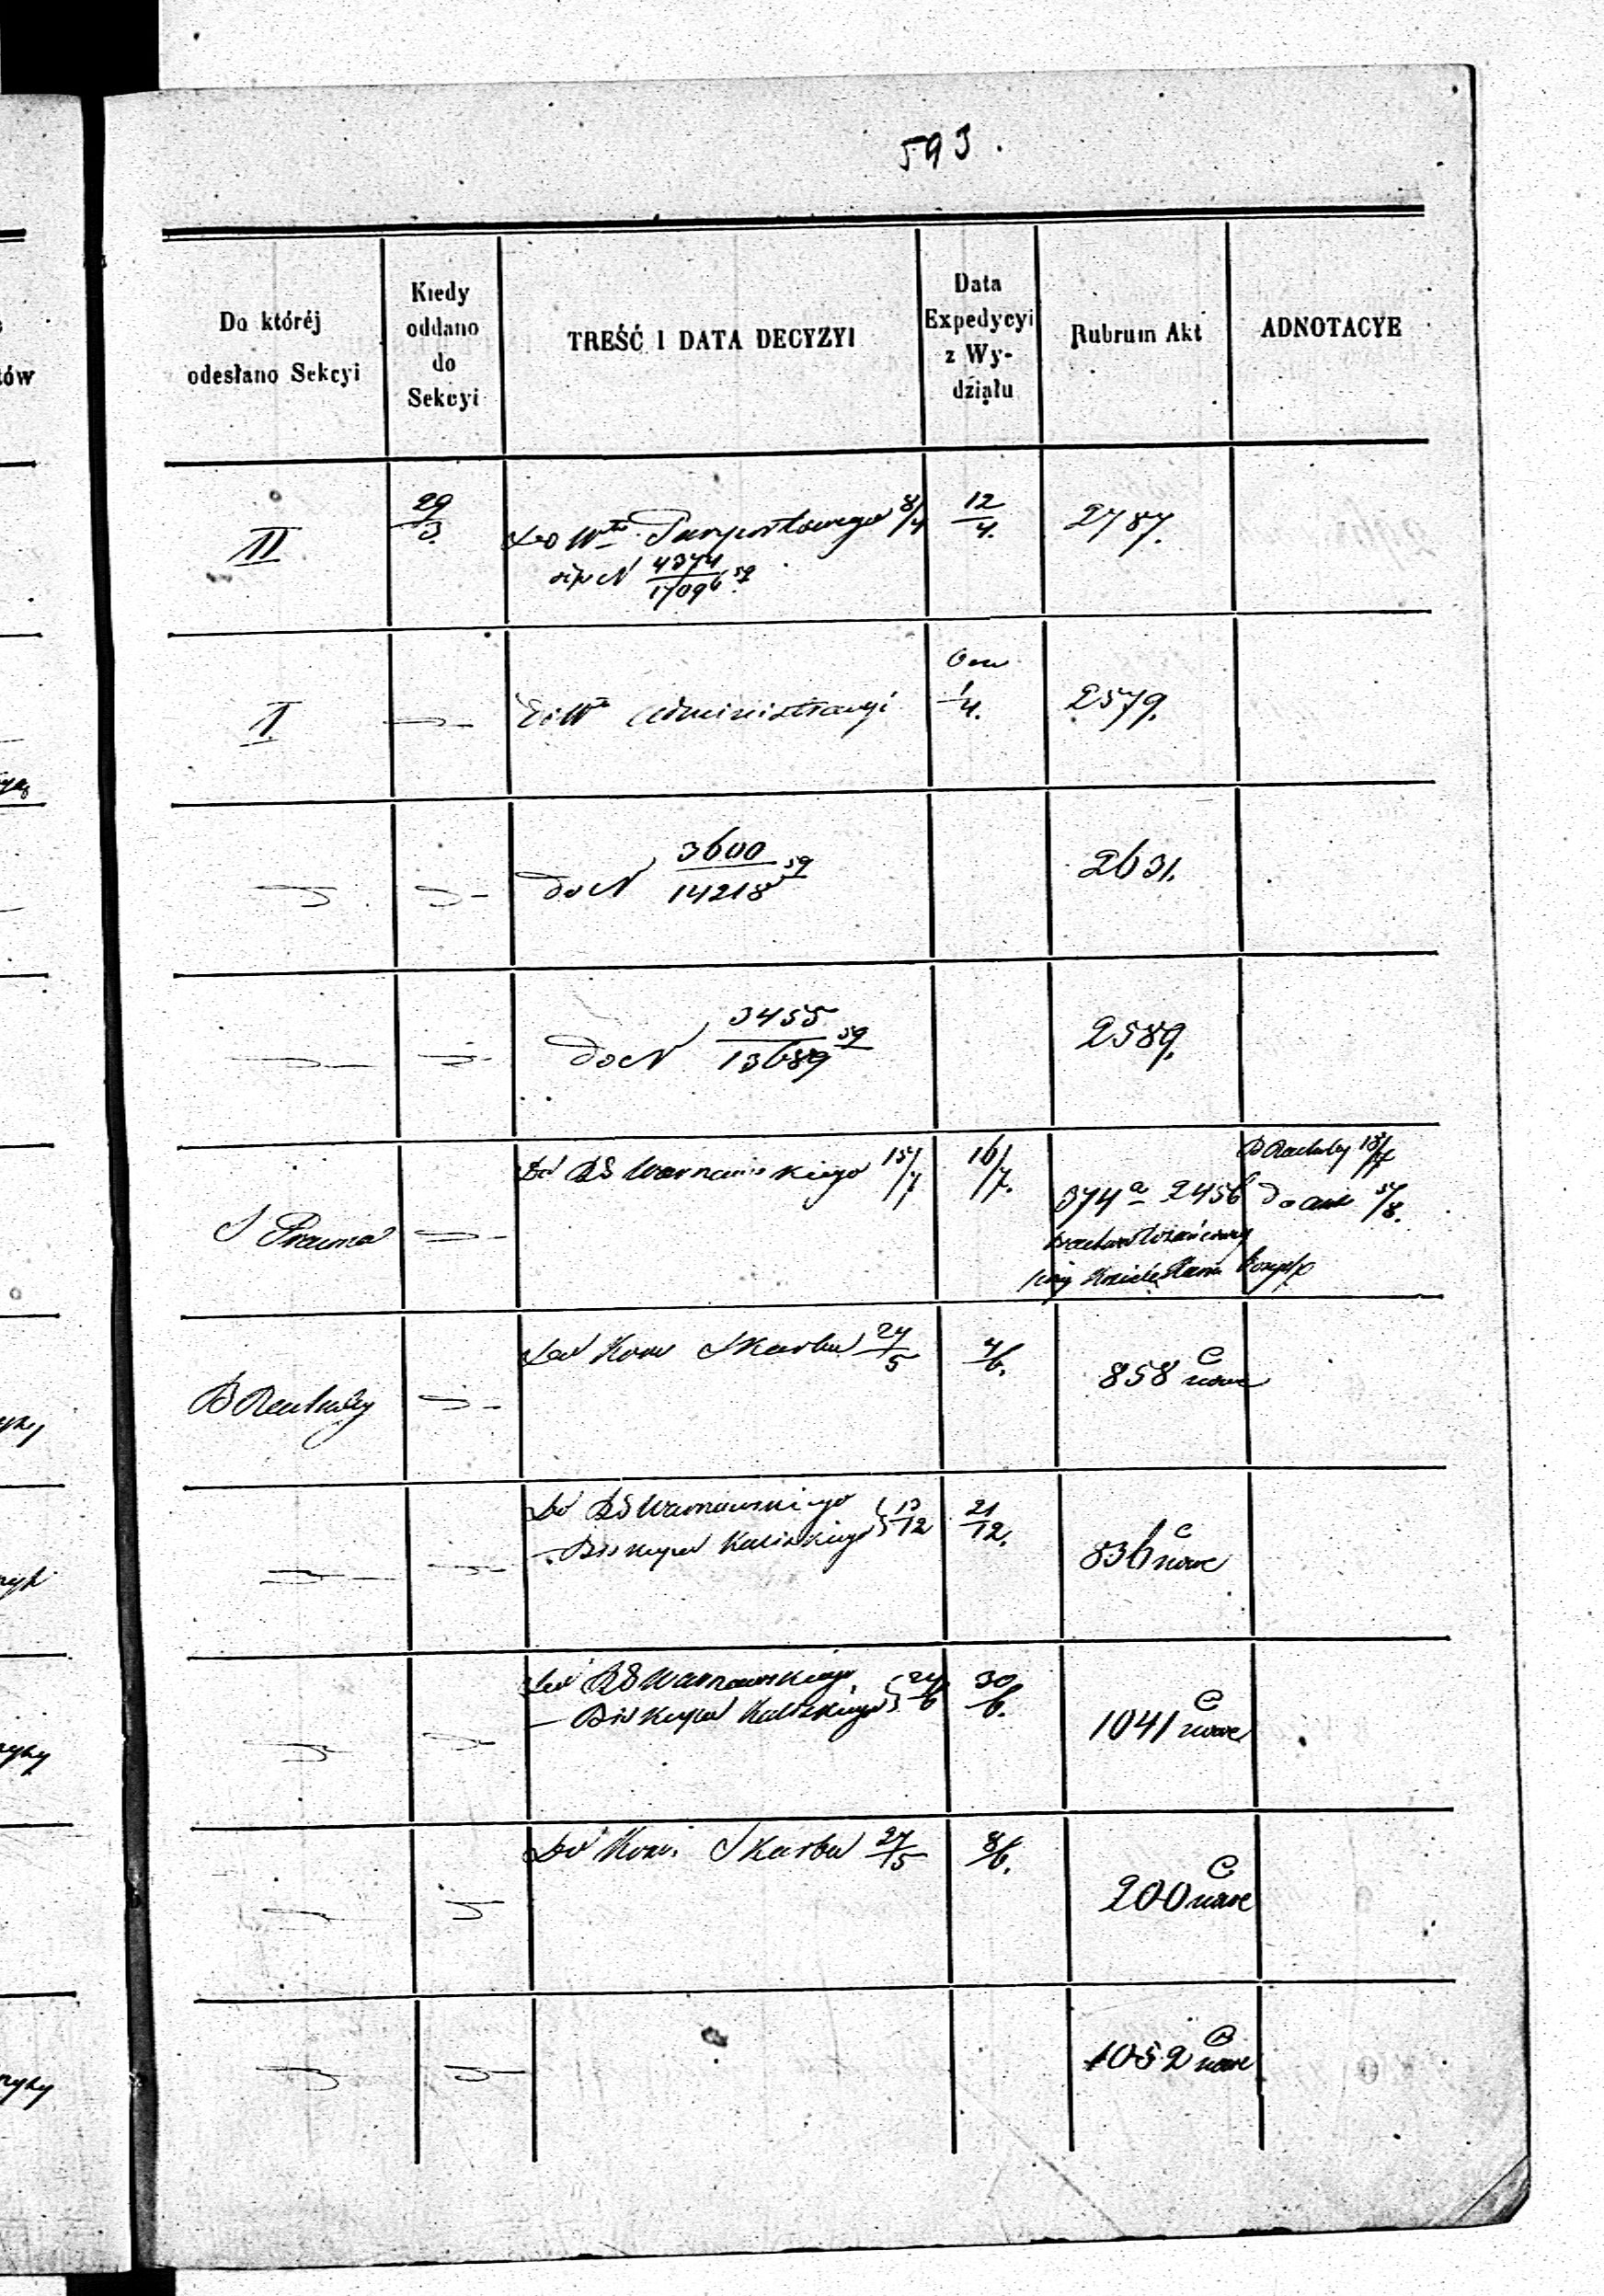 593.
Do któréj odesłano Sekcyi
Kiedy oddano do Sekcyi
TREŚĆ I DATA DECYZYI
Data Expedycyi z Wydziału
Rubrum Akt
ADNOTACYE
II 29/3. Do Włu Paszportowego 8/4 12/4. 2787.
N 4374/17096 59
II Do Włu Administracyi 1/4. 2579.
do N 3600/14218 59 2631.
do N 3455/13689 59 2589.
S Prawna Do RS Warszawskiego 15/7 16/7. 374 a 2456
B Rachuby 18/7
do akt 5/8.
B Rachuby Do Kom Skarbu 24/5 4/6. 858 C nowe
Do RS Warszawskiego
— Biskupa Kaliskiego 13/12 21/12. 836 C nowe
Do RS Warszawskiego
— Biskupa Kaliskiego 24/6 30/6. 1041 C nowe
Do Kom. Skarbu 27/5 8/6. 200 C nowe
1052 B nowe